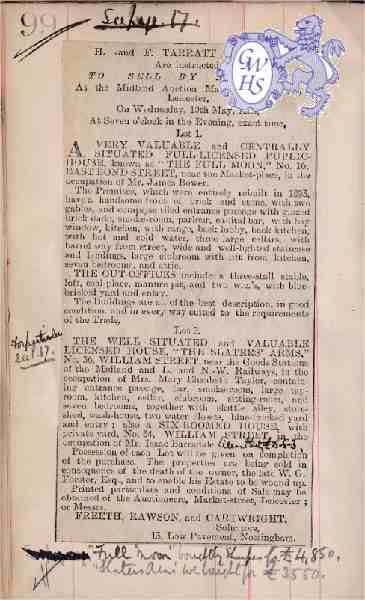 99
H. and F. TARRATT
Are instructed
TO SELL BY
At the Midland Auction
Leicester,
On Wednesday, 10th May,
At Seven o'clock in the Evening, exact time,
Lot 1.
A VERY VALUABLE and CENTRALLY
SITUATED FULL-LICENSED PUBLIC-
HOUSE, known as "THE FULL MOON," No. 16,
EAST BOND STREET, near the Market-place, in the
occupation of Mr. James Bower.
The Premises, which were entirely rebuilt in 1893,
have a handsome front of brick and stone, with two
gables, and comprise tiled entrance passage with
brick dado, smoke-room, parlour, cocktail bar, with bay
window, kitchen, with range, back lobby, back kitchen,
with hot and cold water, three large cellars, with
barrel way from street, wide and well-lighted staircase
and landings, large clubroom with lift from kitchen,
seven bedrooms, and attic.
THE OUT-OFFICES include a three-stall stable,
loft, coal-place, manure pit, and two w.c.'s, with blue-
bricked yard and entry.
The Buildings are of the best description, in good
condition, and in every way suited to the requirements
of the Trade.
Lot 2.
THE WELL SITUATED and VALUABLE
LICENSED HOUSE, "THE SLATERS' ARMS,"
No. 36, WILLIAM STREET, near the Goods Stations
of the Midland and L. and N.-W. Railways, in the
occupation of Mrs. Mary Elizabeth Taylor, contain-
ing entrance passage, bar, smoke-room, large tap-
room, kitchen, cellar, clubroom, sitting-room, and
seven bedrooms, together with skittle alley, store-
shed, wash-house, two water closets, blue-bricked yard
and entry; also a SIX-ROOMED HOUSE, with
private yard, No. 34, WILLIAM STREET, in the
occupation of Mr. Edward Barnes.
Possession of each Lot will be given on completion
of the purchase. The properties are being sold in
consequence of the death of the owner, the late W. G.
Forster, Esq., and to enable his Estate to be wound up.
Printed particulars and conditions of Sale may be
obtained of the Auctioneers, Market-street, Leicester;
or Messrs.
FREETH, RAWSON, and CARTWRIGHT,
Solicitors,
15, Low Pavement, Nottingham.
"Full Moon" bought by for £4,850.
"Slaters Arms" we bought for £3550.
GWHS